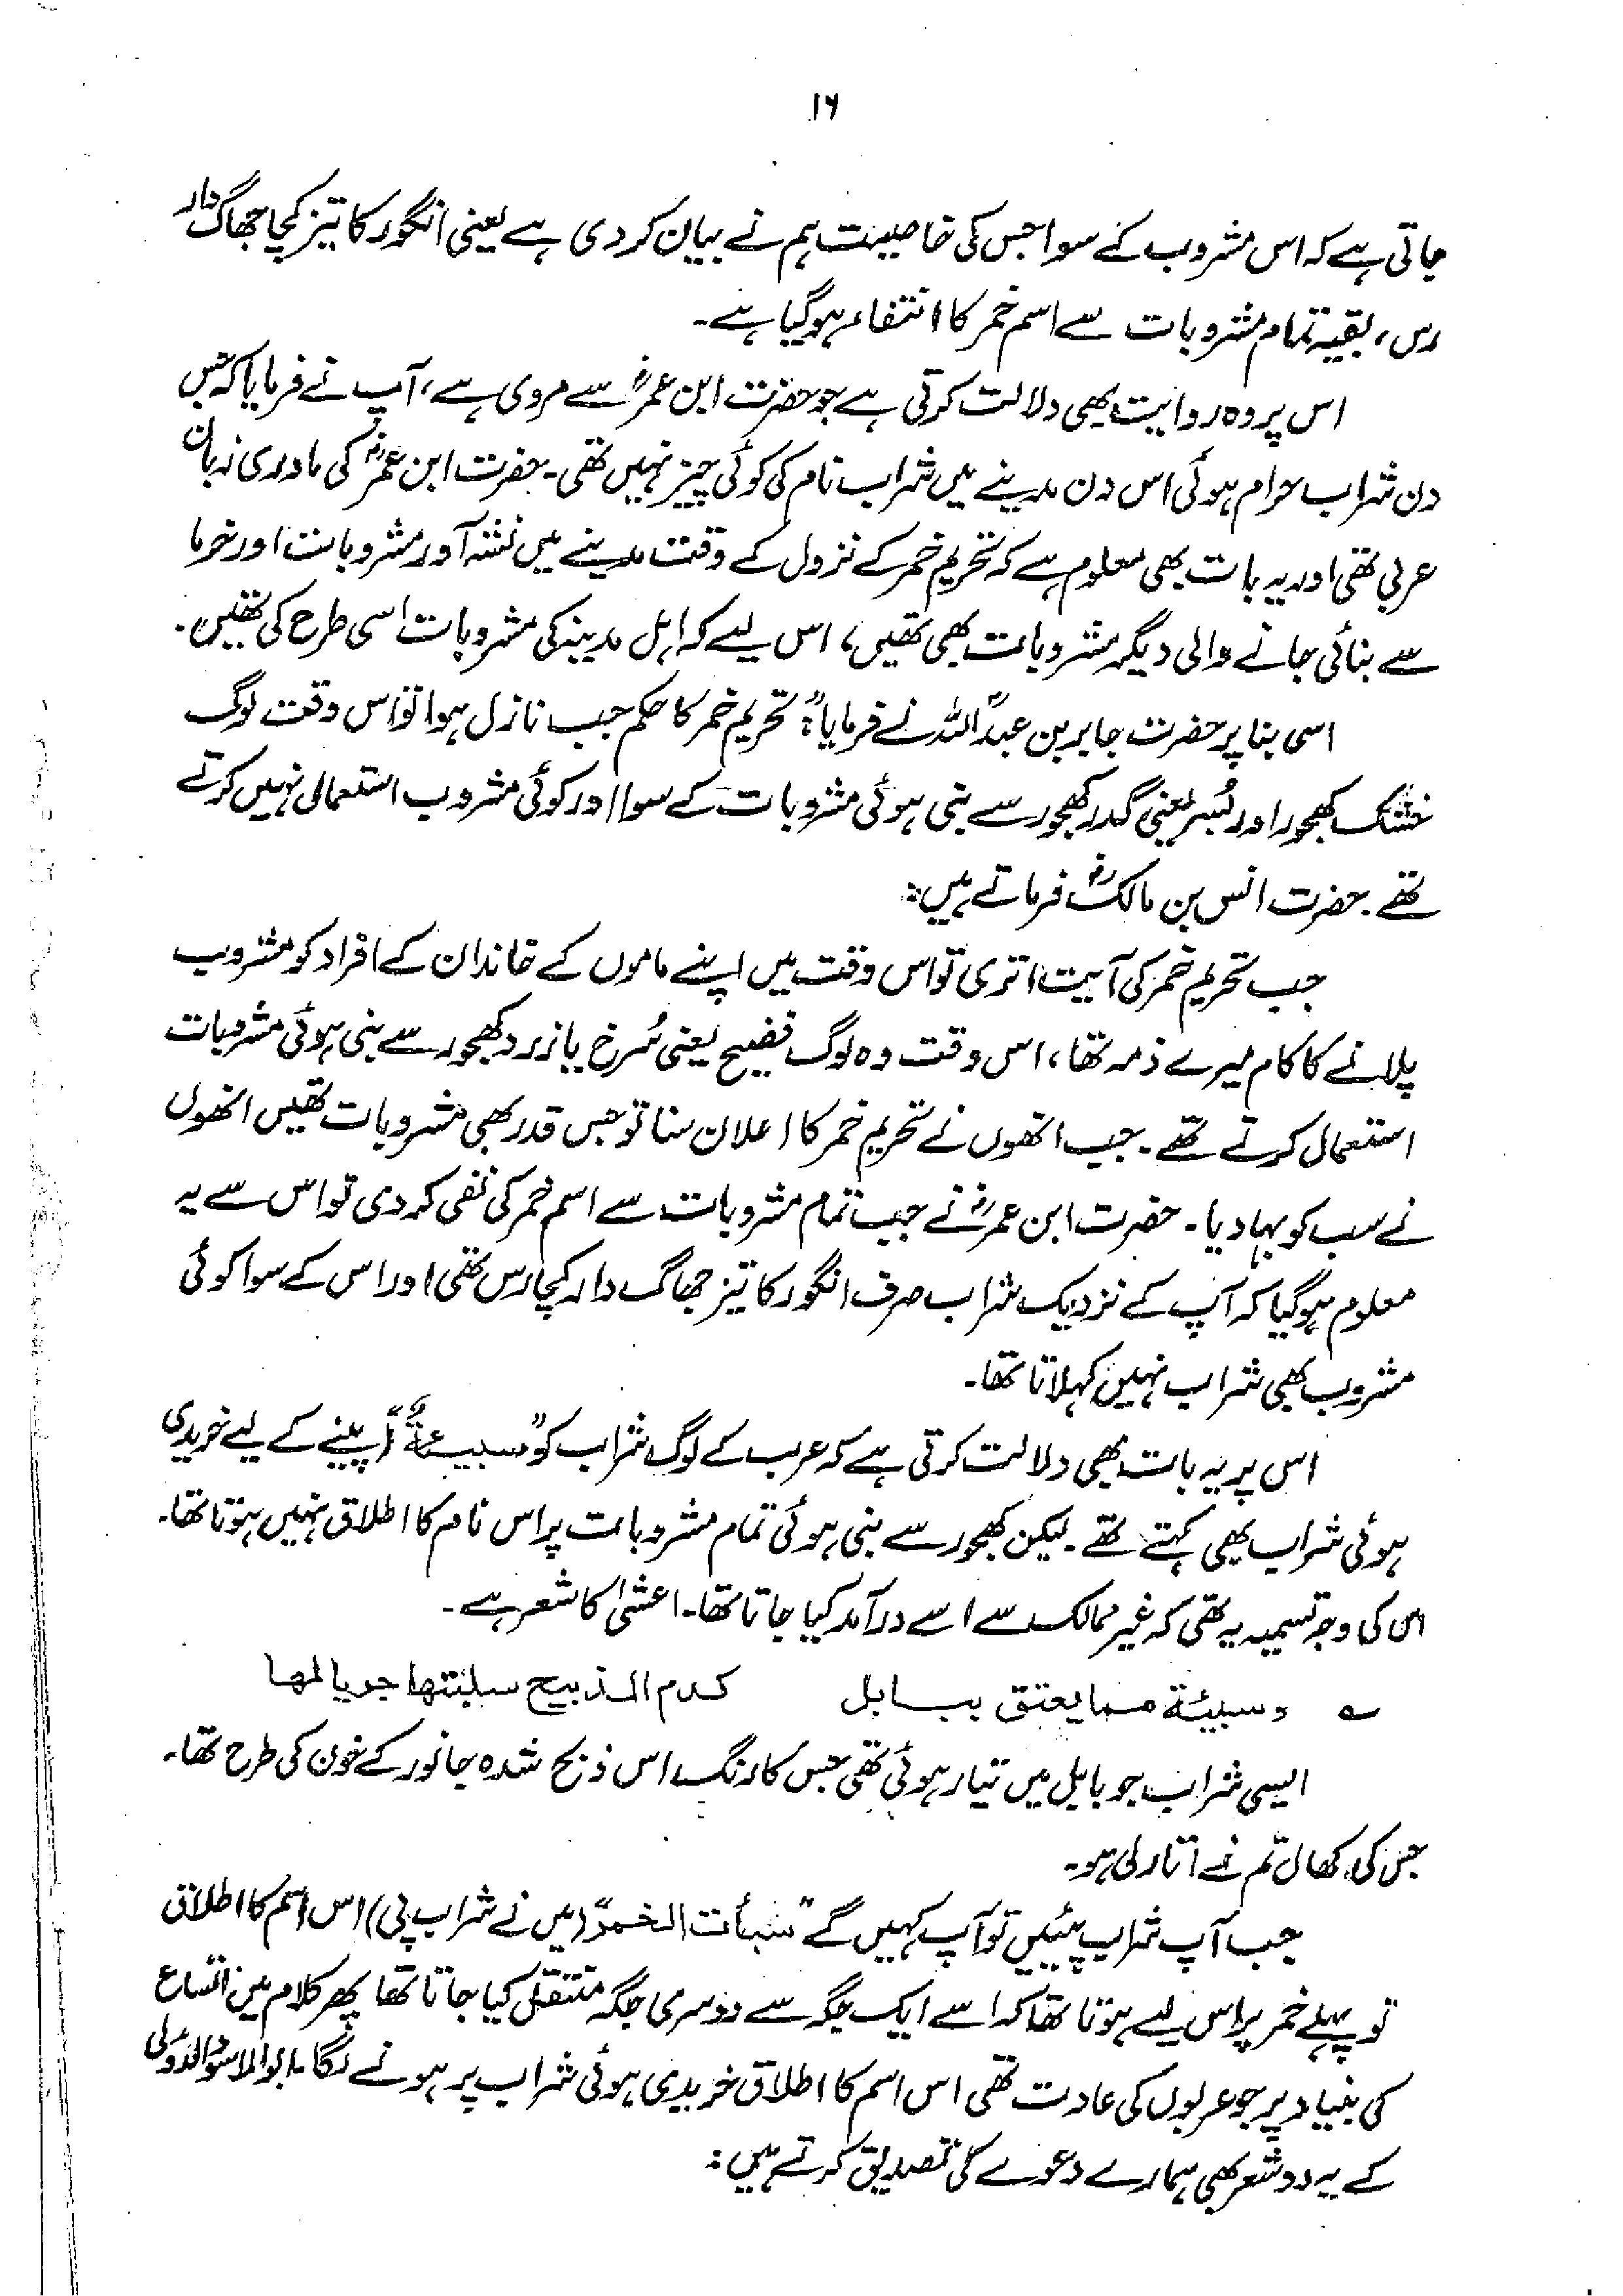 ۱۶
جاتی ہے کہ اس مشروب کے سوا جس کی خاصیت ہم نے بیان کر دی ہے یعنی انگور کا تیز کچا جھاگ دار
رس، بقیہ تمام مشروبات سے اسم خمر کا انتفاء ہوگیا ہے۔
اس پر وہ روایت بھی دلالت کرتی ہے جو حضرت ابن عمرؓ سے مروی ہے، آپ نے فرمایا کہ جس
دن شراب حرام ہوئی اس دن مدینے میں شراب نام کی کوئی چیز نہیں تھی۔ حضرت ابن عمرؓ کی مادری زبان
عربی تھی اور یہ بات بھی معلوم ہے کہ تحریم خمر کے نزول کے وقت مدینے میں نشہ آور مشروبات اور خرما
سے بنائی جانے والی دیگر مشروبات بھی تھیں، اس لیے کہ اہل مدینہ کی مشروبات اسی طرح کی تھیں۔
اسی بنا پر حضرت جابر بن عبداللہؓ نے فرمایا: "تحریم خمر کا حکم جب نازل ہوا تو اس وقت لوگ
خشک کھجور اور بُسر یعنی گدر کھجور سے بنی ہوئی مشروبات کے سوا اور کوئی مشروب استعمال نہیں کرتے
تھے۔ حضرت انس بن مالکؓ فرماتے ہیں:
جب تحریم خمر کی آیت اتری تو اس وقت میں اپنے ماموں کے خاندان کے افراد کو مشروب
پلانے کا کام میرے ذمہ تھا، اس وقت وہ لوگ فضیح یعنی سُرخ یا زرد کھجور سے بنی ہوئی مشروبات
استعمال کرتے تھے۔ جب انھوں نے تحریم خمر کا اعلان سنا تو جس قدر بھی مشروبات تھیں انھوں
نے سب کو بہا دیا۔ حضرت ابن عمرؓ نے جب تمام مشروبات سے اسم خمر کی نفی کر دی تو اس سے یہ
معلوم ہوگیا کہ آپ کے نزدیک شراب صرف انگور کا تیز جھاگ دار کچا رس تھی اور اس کے سوا کوئی
مشروب بھی شراب نہیں کہلاتا تھا۔
اس پر یہ بات بھی دلالت کرتی ہے کہ عرب کے لوگ شراب کو "سبیئۃٌ" (پینے کے لیے خریدی
ہوئی شراب بھی کہتے تھے۔ لیکن کھجور سے بنی ہوئی تمام مشروبات پر اس نام کا اطلاق نہیں ہوتا تھا۔
اس کی وجہ تسمیہ یہ تھی کہ غیر ممالک سے اسے درآمد کیا جاتا تھا۔ اعشیٰ کا شعر ہے۔
؎ وسبيئة مما يعتق ببابل کدم الذبيح سلبتها جريالها
ایسی شراب جو بابل میں تیار ہوئی تھی جس کا رنگ اس ذبح شدہ جانور کے خون کی طرح تھا۔
جس کی کھال تم نے اتار لی ہو۔
جب آپ شراب پئیں تو آپ کہیں گے "سبأت الخمر" (میں نے شراب پی) اس اسم کا اطلاق
تو پہلے خمر پر اس لیے ہوتا تھا کہ اسے ایک جگہ سے دوسری جگہ منتقل کیا جاتا تھا پھر کلام میں اتساع
کی بنیاد پر جو عربوں کی عادت تھی اس اسم کا اطلاق خریدی ہوئی شراب پر ہونے لگا۔ ابوالاسود الدؤلی
کے یہ دو شعر بھی ہمارے دعوے کی تصدیق کرتے ہیں: